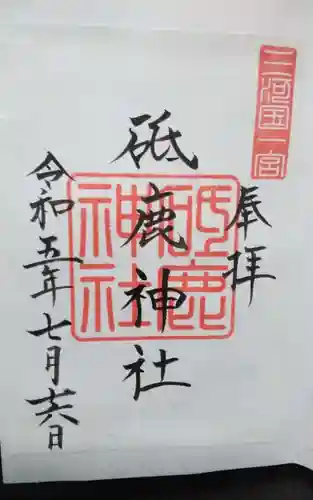 三河国一宮
奉拝
砥鹿神社
砥鹿
神社
令和五年七月十六日